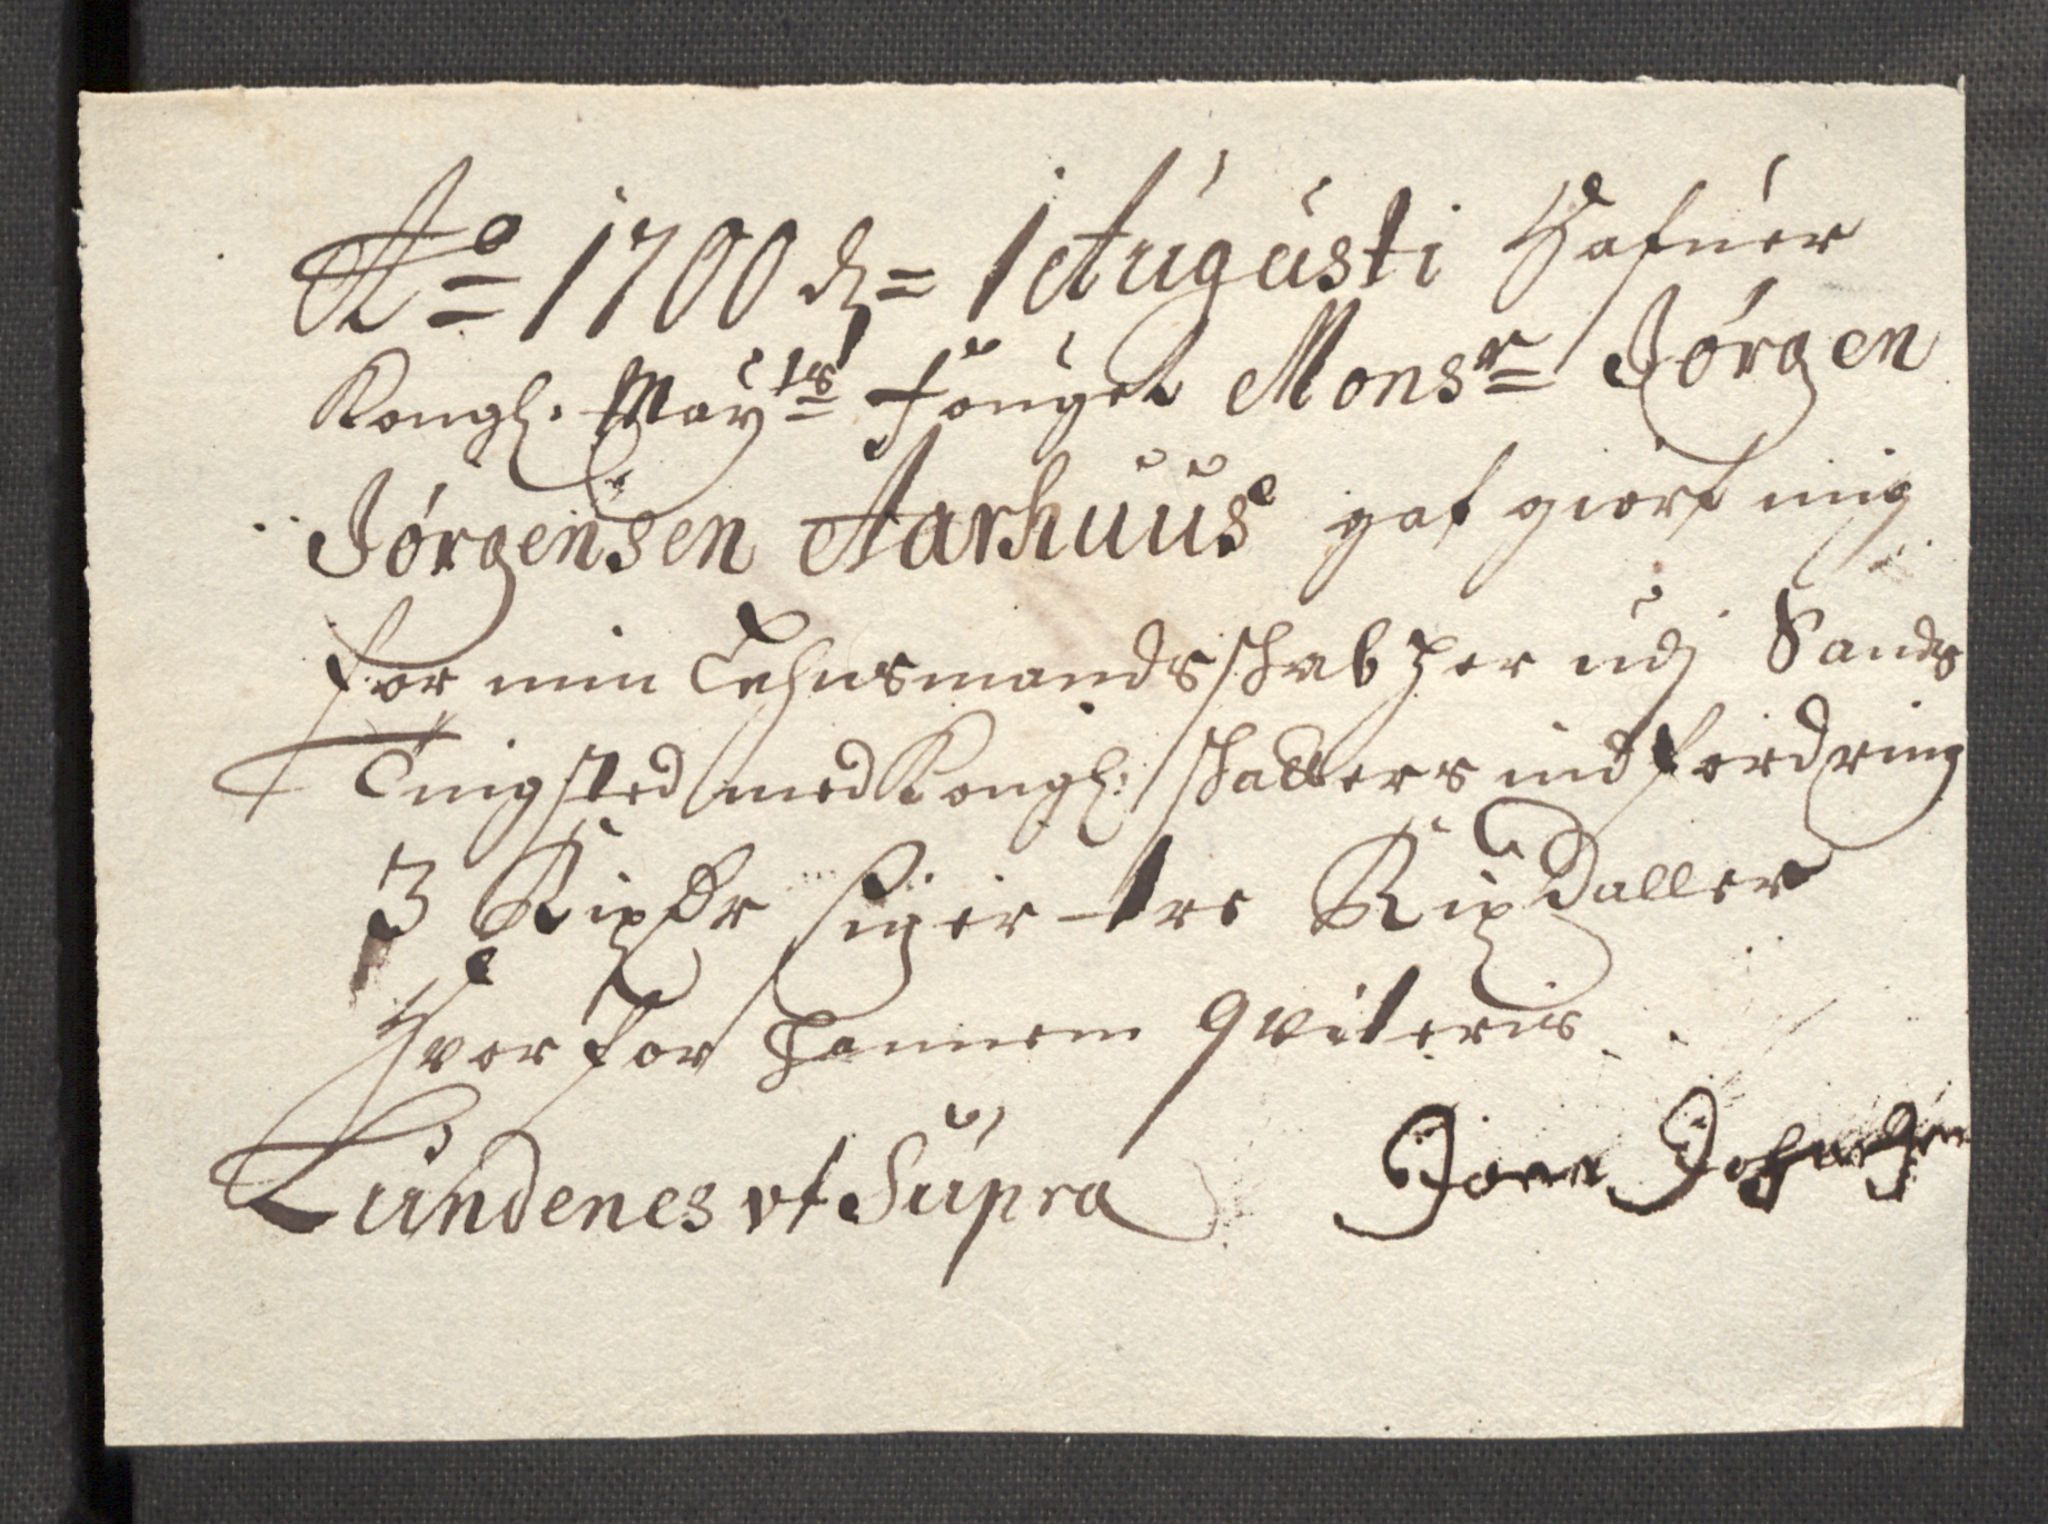 Ao 1700 d= 1 Augusti Hafuer
Kongl. Maytz Fouget Monsr Jørgen
Jørgensen Aarhuus gaf giort mig
for min Lehnsmandsskab her udj Sands
Tingsted med Kongl: skatters indfordring
3 Rixdr siger tre Rixdaller
Hvorfor hannem qviteris
Lundenes vt Supra Joen